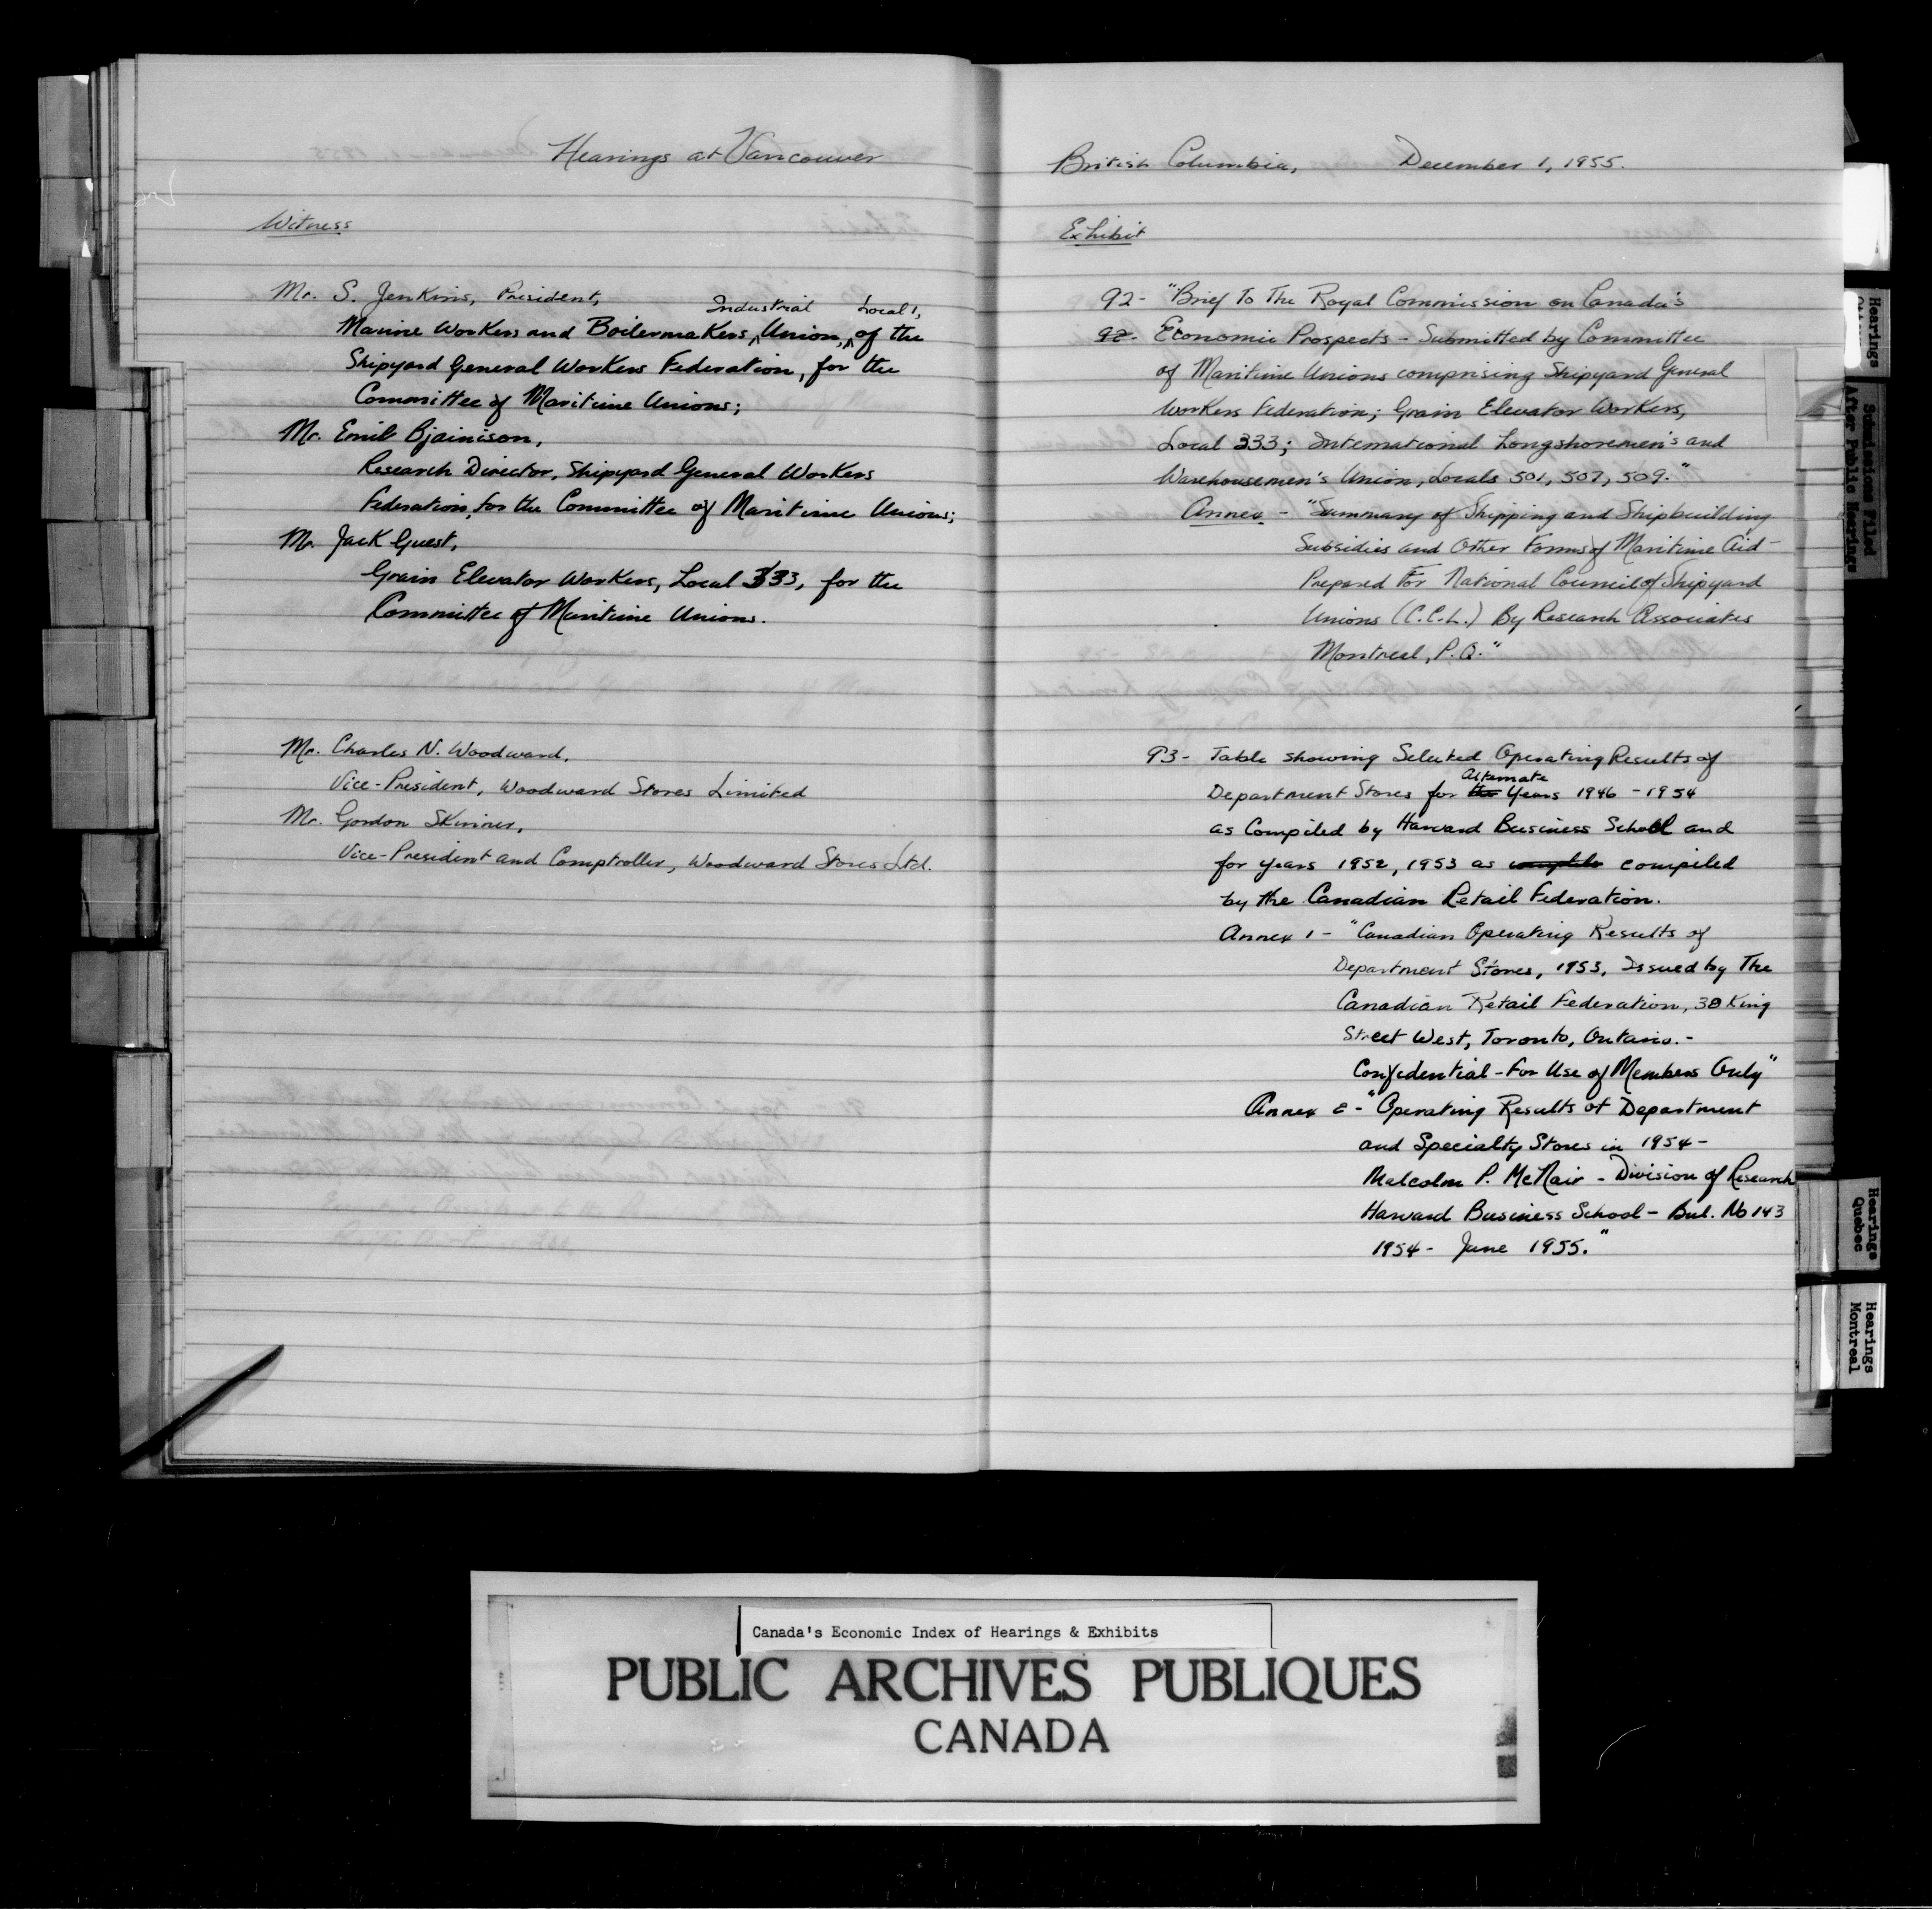 Hearings at Vancouver
Witness
Mr. S. Jenkins, President,
Industrial Local 1,
Marine Workers and Boilermakers Union, of the
Shipyard General Workers Federation, for the
Committee of Maritime Unions;
Mr. Emil Bjarnison,
Research Director, Shipyard General Workers
Federation, for the Committee of Maritime Unions;
Mr. Jack Guest,
Grain Elevator Workers, Local 333, for the
Committee of Maritime Unions.
Mr. Charles N. Woodward,
Vice-President, Woodward Stores Limited
Mr. Gordon Skinner,
Vice-President and Comptroller, Woodward Stores Ltd.
British Columbia, December 1, 1955.
Exhibit
92- "Brief To The Royal Commission on Canada's
92- Economic Prospects - Submitted by Committee
of Maritime Unions comprising Shipyard General
Workers Federation; Grain Elevator Workers,
Local 333; International Longshoremen's and
Warehousemen's Union, Locals 501, 507, 509."
Annex - "Summary of Shipping and Shipbuilding
Subsidies and Other Forms of Maritime Aid -
Prepared For National Council of Shipyard
Unions (C.C.L.) By Research Associates
Montreal, P.Q."
93- Table showing Selected Operating Results of
Alternate
Department Stores for the Years 1946 - 1954
as Compiled by Harvard Business School and
for years 1952, 1953 as compiled
by the Canadian Retail Federation.
Annex 1 - "Canadian Operating Results of
Department Stores, 1953, Issued by The
Canadian Retail Federation, 38 King
Street West, Toronto, Ontario. -
Confidential - For Use of Members Only"
Annex 2 - "Operating Results of Department
and Specialty Stores in 1954 -
Malcolm P. McNair - Division of Research
Harvard Business School - Bul. No 143
1954 - June 1955."
Hearings
Submissions Filed
After Public Hearings
Hearings
Quebec
Hearings
Montreal
Canada's Economic Index of Hearings & Exhibits
PUBLIC ARCHIVES PUBLIQUES
CANADA